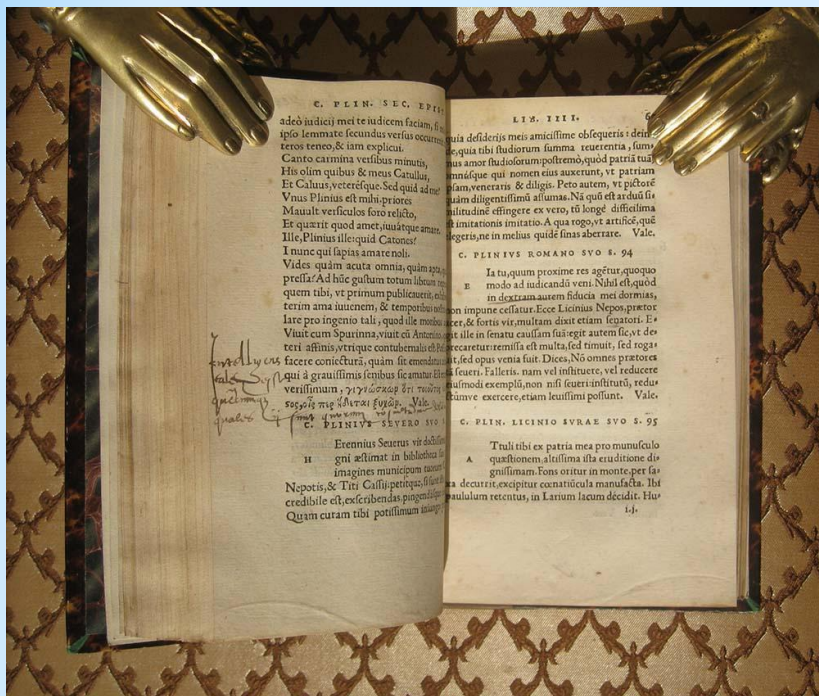 C. PLIN. SEC. EPIST
adeò iudicij mei te iudicem faciam, si
ipso lemmate secundus versus occurre
teros teneo, & iam explicui.
Canto carmina versibus minutis,
His olim quibus & meus Catullus,
Et Caluus, veterésque. Sed quid ad me?
Vnus Plinius est mihi. priores
Mauult versiculos foro relicto,
Et quærit quod amet, iuuátque amare.
Ille, Plinius ille: quid Catones?
I nunc qui sapias amare noli.
Vides quàm acuta omnia, quàm apta,
pressa? Ad hûc gustum totum librum
quem tibi, vt primum publicauerit,
terim ama iuuenem, & temporibus
lare pro ingenio tali, quod ille moribus
Viuit cum Spurinna, viuit cû Antonino
teri affinis, vtrique contubernalis est.
facere coniecturâ, quàm sit emendatus
qui à grauissimis senibus sic amatur.
verissimum, γιγνώσκωρ ὅτι
σος, οἷς περ ἥδεται ξυχώρ. Vale.
quales
C. PLINIVS SEVERO SVO
H
Erennius Seuerus vir doctissim
gni æstimat in bibliotheca
imagines municipum tuorum
Nepotis, & Titi Cassij. petitque, si
credibile est, exscribendas, pingendásque
Quam curam tibi potissimum iniungo
LIB. IIII.
quia desiderijs meis amicissime obsequeris: dein
de, quia tibi studiorum summa reuerentia, sum-
mus amor studiosorum: postremò, quòd patriã tuã,
omnésque qui nomen eius auxerunt, vt patriam
ipsam, veneraris & diligis. Peto autem, vt pictorẽ
quàm diligentissimũ assumas. Nã quũ est arduũ si-
militudinẽ effingere ex vero, tũ longè difficilima
est imitationis imitatio. A qua rogo, vt artificẽ, quẽ
elegeris, ne in melius quidẽ sinas aberrare. Vale.
C. PLINIVS ROMANO SVO S. 94
E
Ia tu, quum proxime res agẽtur, quoquo
modo ad iudicandũ veni. Nihil est, quòd
in dextram autem fiducia mei dormias,
non impune cessatur. Ecce Licinius Nepos, prætor
acer, & fortis vir, multam dixit etiam senatori. E-
git ille in senatu caussam suã: egit autem sic, vt de-
precaretur: remissa est multa, sed timuit, sed roga-
uit, sed opus venia fuit. Dices, Nõ omnes prætores
tã seueri. Falleris. nam vel instituere, vel reducere
eiusmodi exemplũ, non nisi seueri: institutũ, redu-
ctúmve exercere, etiam leuissimi possunt. Vale.
C. PLIN. LICINIO SVRAE SVO S. 95
A
Ttuli tibi ex patria mea pro munusculo
quæstionem, altissima ista eruditione di-
gnissimam. Fons oritur in monte, per sa-
xa decurrit, excipitur cœnatiũcula manufacta. Ibi
paululum retentus, in Larium lacum decidit. Hu-
i.j.